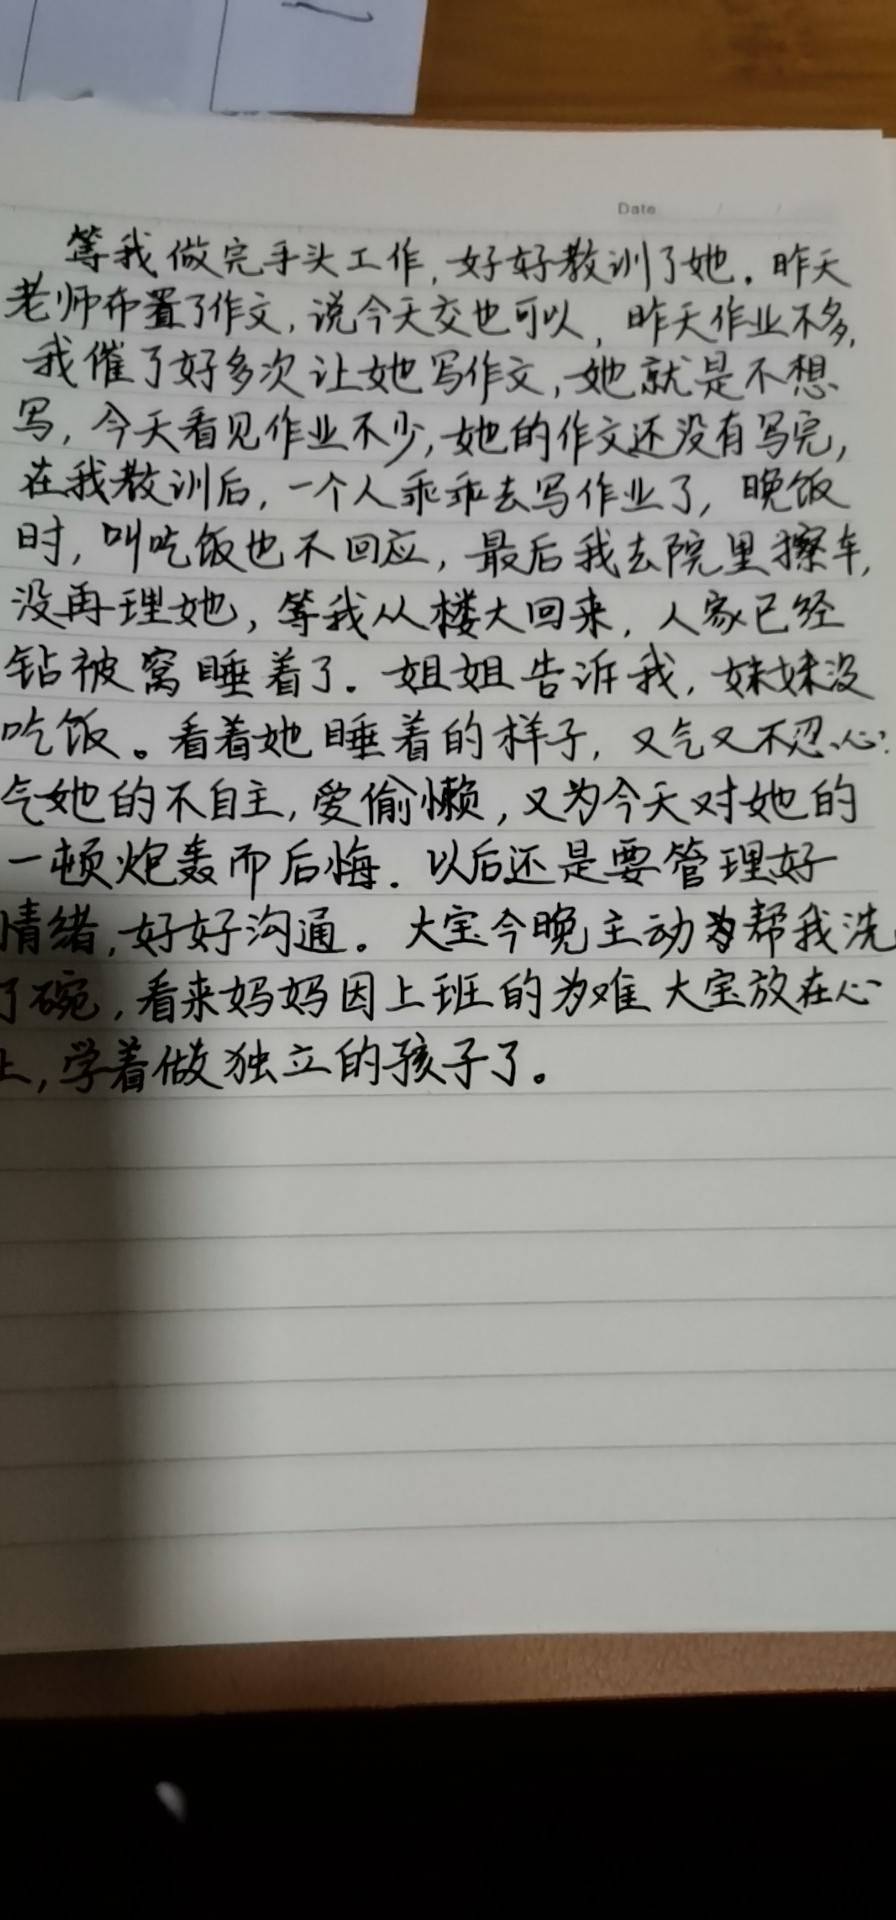 Date / /
等我做完手头工作，好好教训了她。昨天
老师布置了作文，说今天交也可以，昨天作业不多，
我催了好多次让她写作文，她就是不想
写，今天看见作业不少，她的作文还没有写完，
在我教训后，一个人乖乖去写作业了，晚饭
时，叫吃饭也不回应，最后我去院里擦车，
没再理她，等我从楼大回来，人家已经
钻被窝睡着了。姐姐告诉我，妹妹没
吃饭。看着她睡着的样子，又气又不忍心：
气她的不自主，爱偷懒，又为今天对她的
一顿炮轰而后悔。以后还是要管理好
情绪，好好沟通。大宝今晚主动为帮我洗
了碗，看来妈妈因上班的为难大宝放在心
上，学着做独立的孩子了。